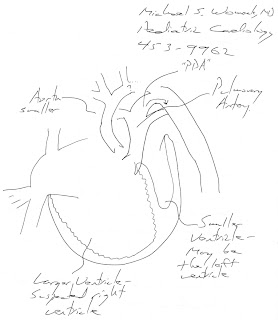 Michael S. Womack, MD
Pediatric Cardiology
453-9962
"PDA"
Aorta
smaller
Pulmonary
Artery
Smaller
Ventricle-
May be
the left
ventricle
Larger Ventricle-
Suspected right
ventricle